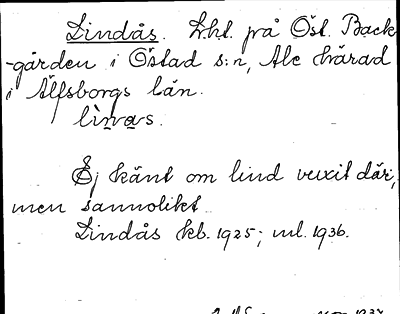 Lindås. Lht. på Öst. Back-
-gården i Östad s:n, Ale härad
i Älfsborgs län.
lìnas.
Ej känt om lind vuxit där,
men sannolikt.
Lindås kb. 1925; ml. 1936.